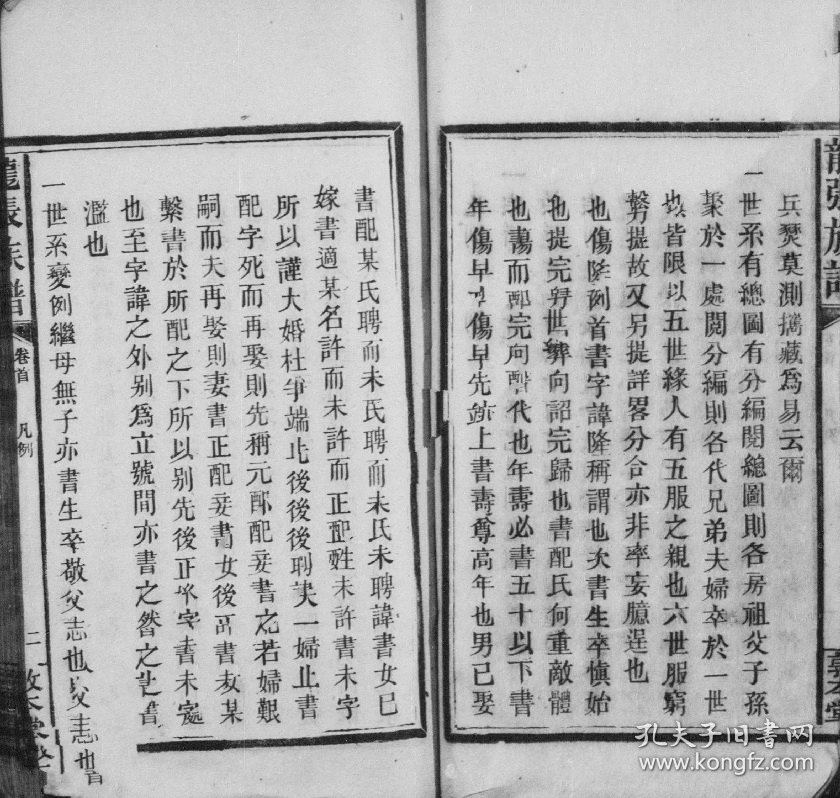 兵燹莫測攜藏爲易云爾
一世系有總圖有分編閱總圖則各房祖父子孫
聚於一處閱分編則各代兄弟夫婦卒於一世
也皆限以五世緣人有五服之親也六世服窮
另提故又另提詳畧分合亦非率妄臆逞也
也傷降例首書字諱降稱謂也次書生卒慎始
也提完向詔完歸也書配氏何重敵體
也而完向代也年壽必書五十以下書
年傷早傷早先上書壽尊高年也男已娶
書配某氏聘而未氏聘而未氏未聘諱書女已
嫁書適某名許而未許而正配姓未許書未字
所以謹大婚杜爭端止後後後聘夫一婦止書
配字死而再娶則先稱元配妾書之若婦艱
嗣而夫再娶則妻書正配妾書女後書某
繫書於所配之下所以別先後正字書未
也至字諱之外別爲立號間亦書之
濫也
一世系變例繼母無子亦書生卒敬父志也父志也
龍張族譜
卷首
凡例
二
孔夫子旧書网
www.kongfz.com